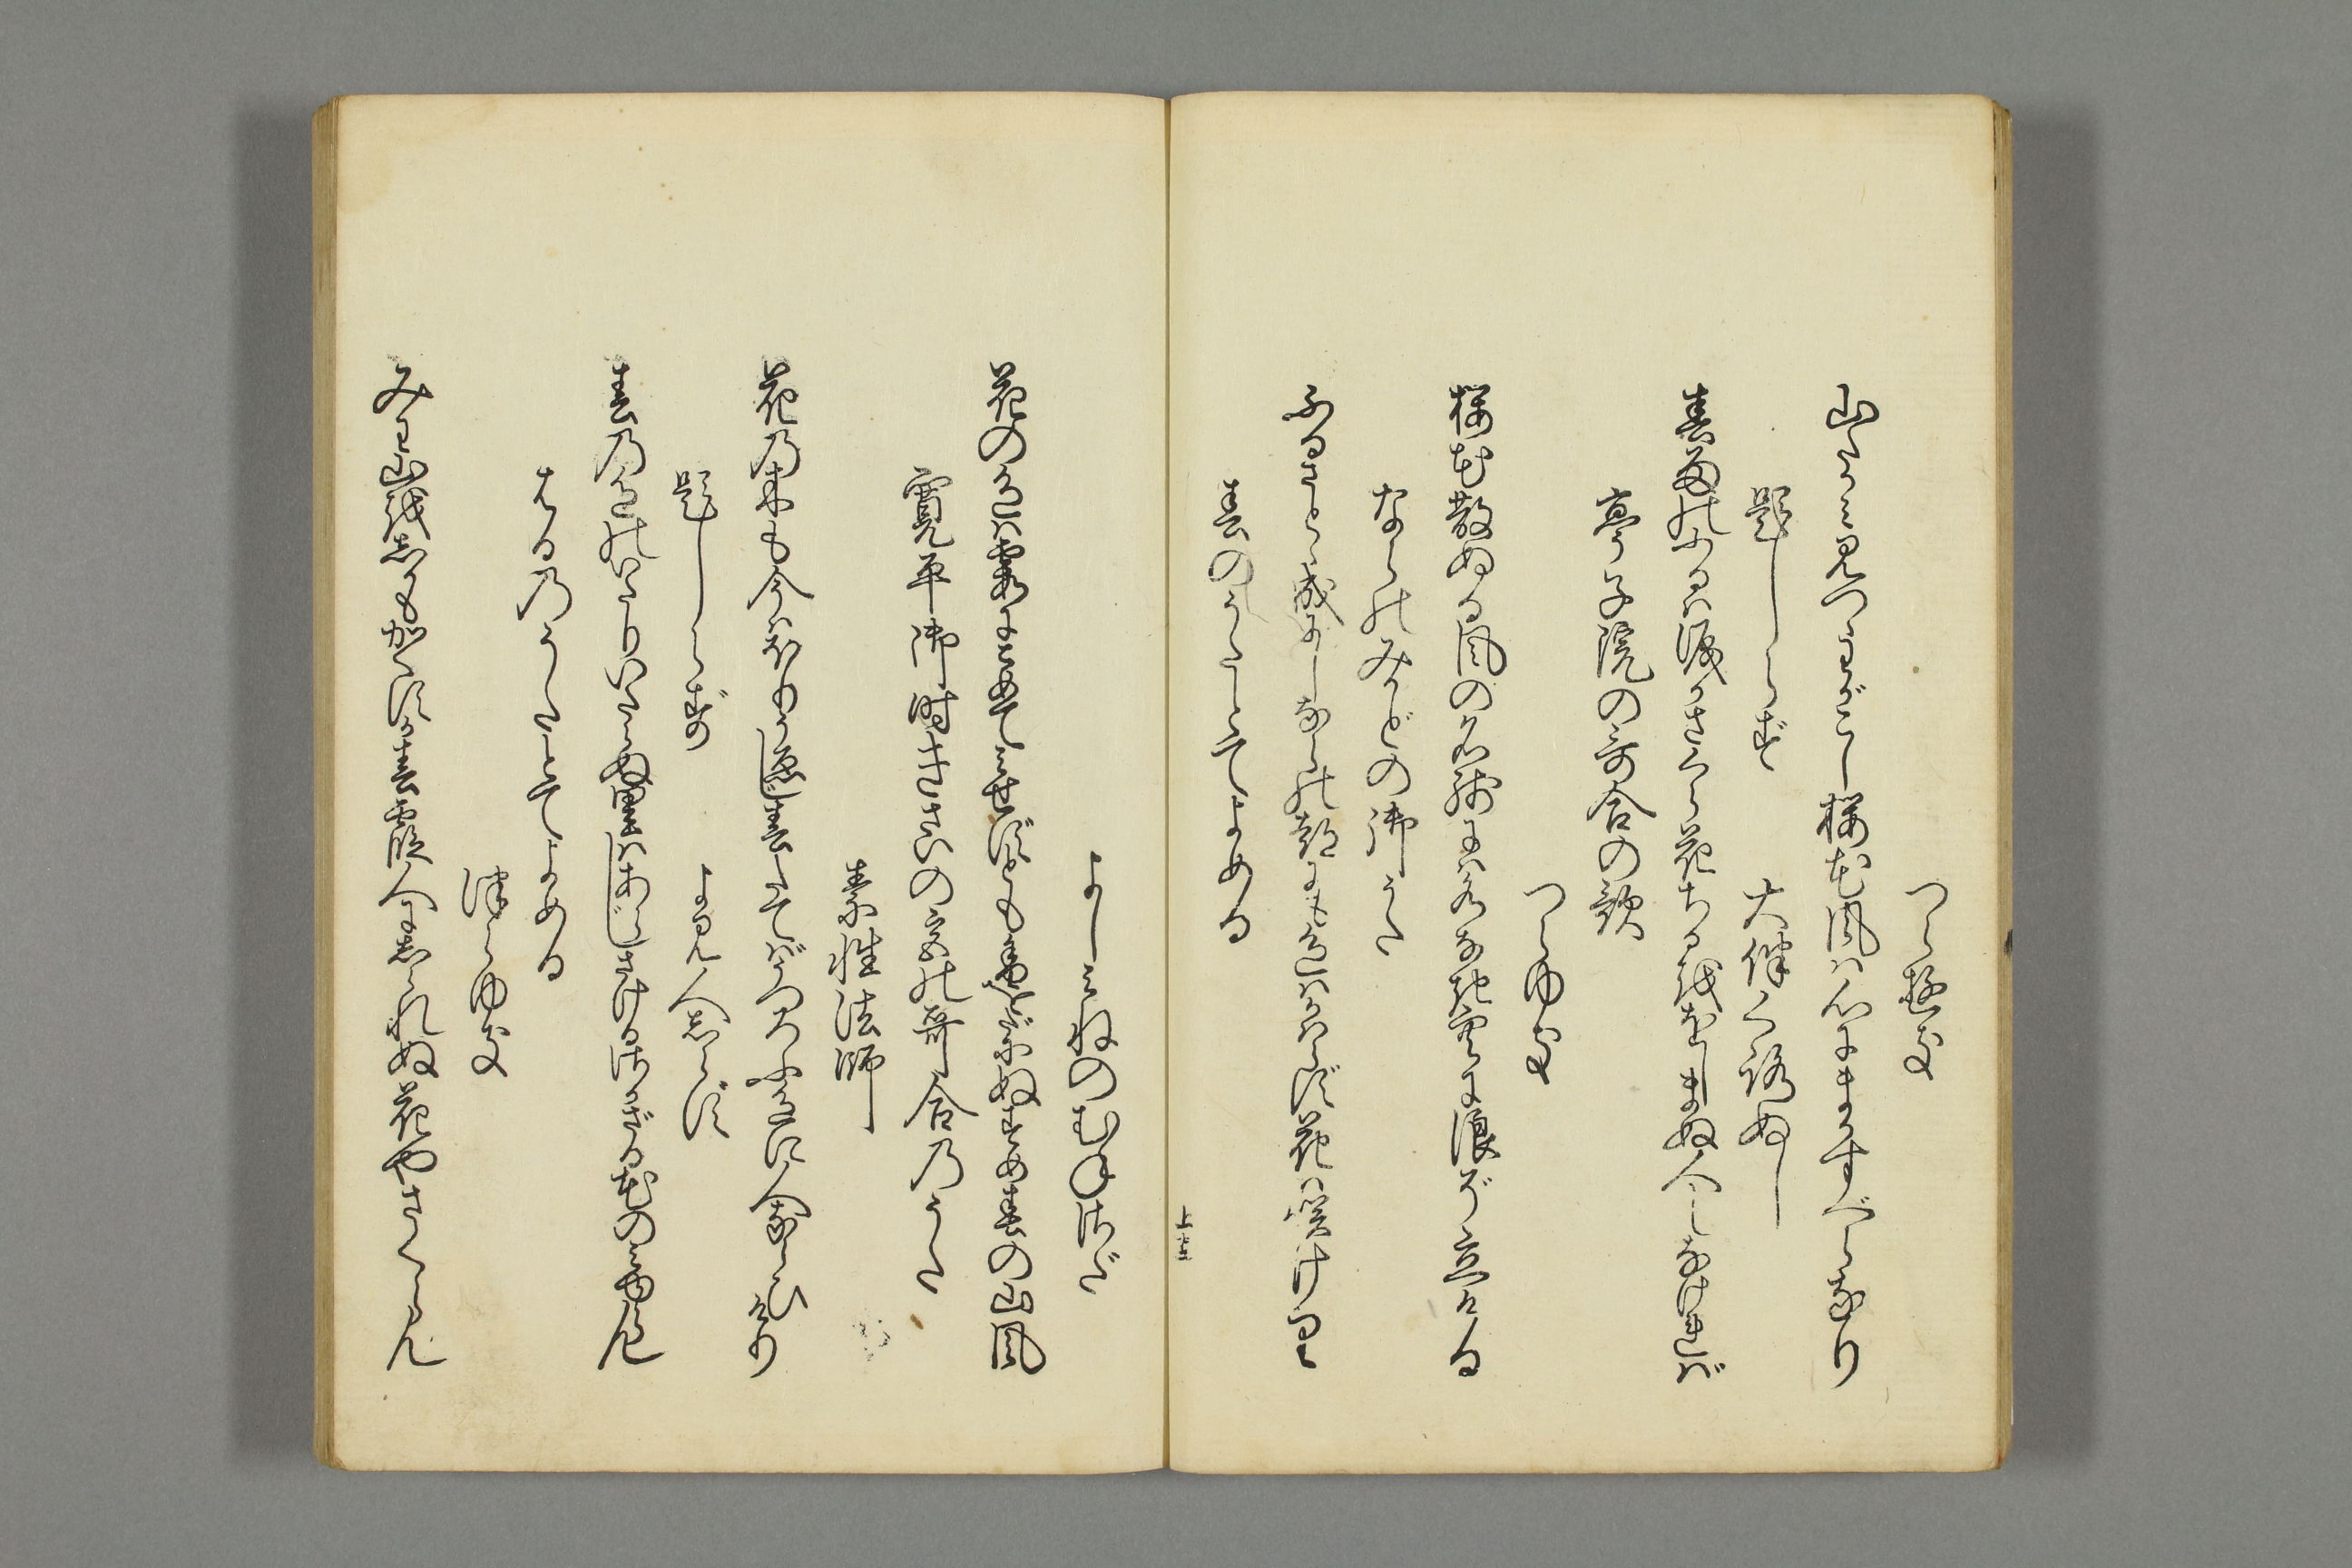 つらゆき
山たかみ見つゝわがこし桜花風は心にまかすべらなり
題しらず
大伴くろぬし
春雨のふるは涙かさくら花ちるををしまぬ人しなければ
亭子院の哥合の歌
つらゆき
桜花散ぬる風の名残には水なき空に浪ぞ立ける
ならのみかどの御うた
ふるさとゝ成にしならの都にも色はかはらず花は咲けり
春のうたとてよめる
上十五
よしみねのむねさだ
花の色は霞にこめてみせずとも香をだにぬすめ春の山風
寛平御時きさいの宮の哥合のうた
素性法師
花の木も今はほりうゑじ春たてばうつろふ色に人ならひけり
題しらず
よみ人しらず
春の色のいたりいたらぬ里はあらじさけるさかざる花のみゆらん
はるのうたとてよめる
つらゆき
みわ山をしかもかくすか春霞人にしられぬ花やさくらん